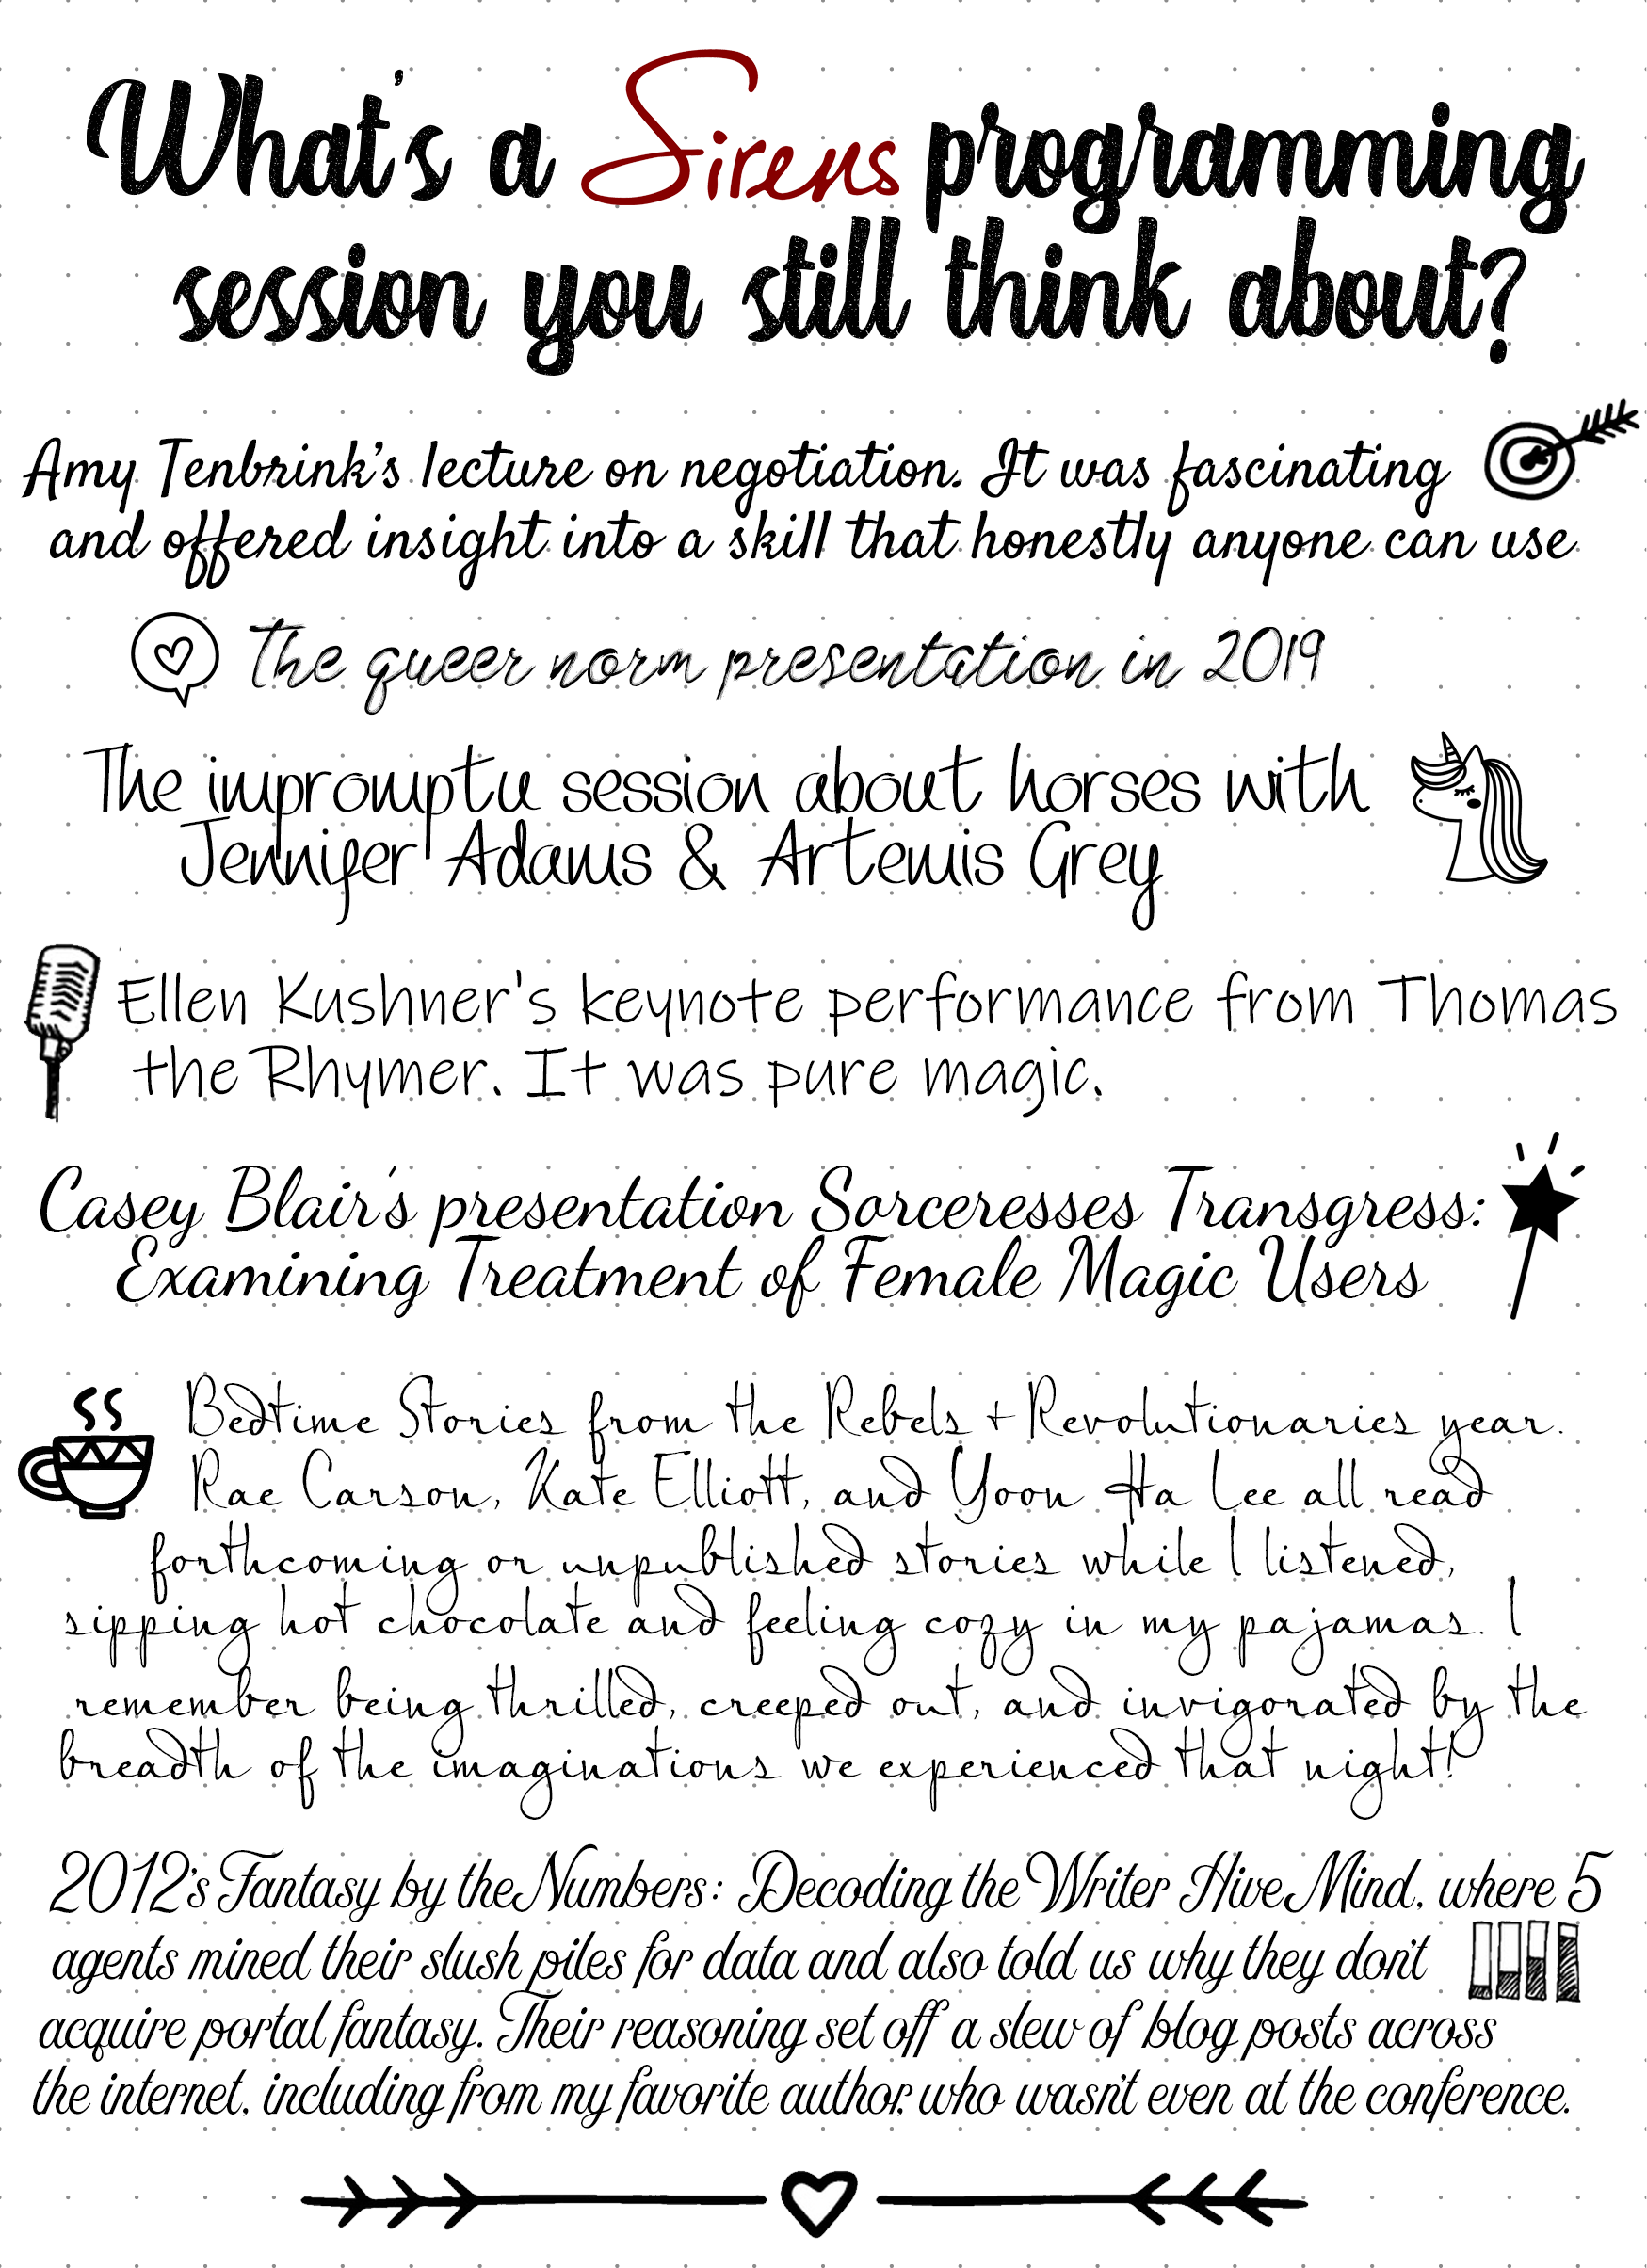 What's a Sirens programming
session you still think about?
Amy Tenbrink's lecture on negotiation. It was fascinating
and offered insight into a skill that honestly anyone can use
The queer norm presentation in 2019
The impromptu session about horses with
Jennifer Adams & Artemis Grey
Ellen Kushner's keynote performance from Thomas
the Rhymer. It was pure magic.
Casey Blair's presentation Sorceresses Transgress:
Examining Treatment of Female Magic Users
Bedtime Stories from the Rebels + Revolutionaries year.
Rae Carson, Kate Elliott, and Yoon Ha Lee all read
forthcoming or unpublished stories while I listened,
sipping hot chocolate and feeling cozy in my pajamas. I
remember being thrilled, creeped out, and invigorated by the
breadth of the imaginations we experienced that night!
2012's Fantasy by the Numbers: Decoding the Writer Hive Mind, where 5
agents mined their slush piles for data and also told us why they don't
acquire portal fantasy. Their reasoning set off a slew of blog posts across
the internet, including from my favorite author, who wasn't even at the conference.